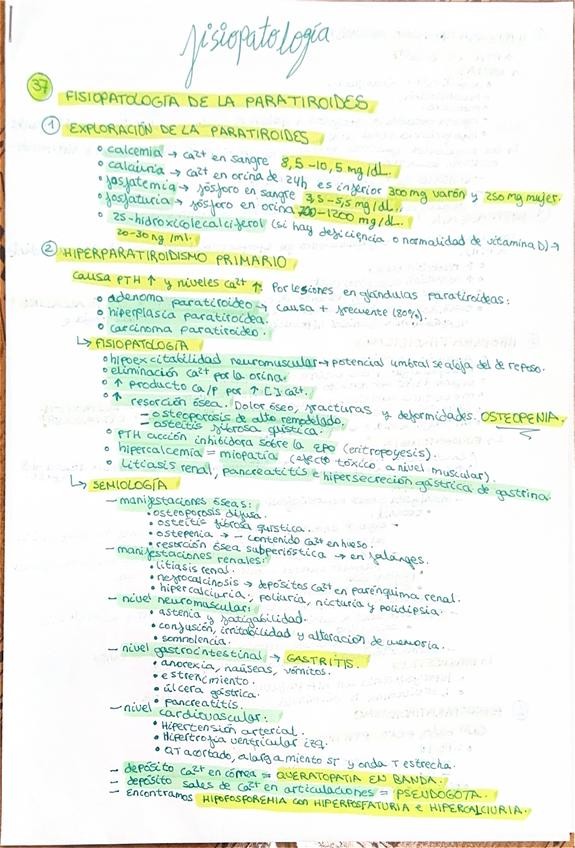 fisiopatología
37 FISIOPATOLOGÍA DE LA PARATIROIDES
1 EXPLORACIÓN DE LA PARATIROIDES
• calcemia → Ca2+ en sangre 8,5-10,5 mg/dL.
• calciuria → Ca2+ en orina de 24h es inferior 300 mg varón y 250 mg mujer.
• fosfatemia → fósforo en sangre 3,5-5,5 mg/dL.
• fosfaturia → fósforo en orina 700-1200 mg/dL.
• 25-hidroxicolecalciferol (si hay deficiencia o normalidad de vitamina D) →
20-30 ng/ml.
2 HIPERPARATIROIDISMO PRIMARIO
Causa PTH ↑ y niveles Ca2+ ↑. Por lesiones en glándulas paratiroideas:
• adenoma paratiroideo → causa + frecuente (80%).
• hiperplasia paratiroidea.
• carcinoma paratiroideo.
↳ FISIOPATOLOGÍA
• hipoexcitabilidad neuromuscular → potencial umbral se aleja del de reposo.
• eliminación Ca2+ por la orina.
• ↑ producto Ca/P por ↑ [] Ca2+.
• ↑ resorción ósea. Dolor óseo, fracturas y deformidades. OSTEOPENIA.
— osteoporosis de alto remodelado.
— osteítis fibrosa quística.
• PTH acción inhibidora sobre la EPO (eritropoyesis).
• hipercalcemia = miopatía (efecto tóxico a nivel muscular).
• litiasis renal, pancreatitis e hipersecreción gástrica de gastrina
↳ SEMIOLOGÍA
— manifestaciones óseas:
• osteoporosis difusa.
• osteítis fibrosa quística.
• ostepenia → - contenido Ca2+ en hueso.
• resorción ósea subperióstica → en falanges.
— manifestaciones renales:
• litiasis renal.
• nefrocalcinosis → depósitos Ca2+ en parénquima renal.
• hipercalciuria, poliuria, nicturia y polidipsia.
— nivel neuromuscular:
• astenia y fatigabilidad.
• confusión, irritabilidad y alteración de memoria.
• somnolencia.
— nivel gastrointestinal → GASTRITIS.
• anorexia, naúseas, vómitos.
• estreñimiento.
• úlcera gástrica.
• pancreatitis.
— nivel cardiovascular:
• Hipertensión arterial.
• Hipertrofia ventricular izq.
• QT acortado, alargamiento ST y onda T estrecha.
— depósito Ca2+ en córnea = QUERATOPATIA EN BANDA.
— depósito sales de Ca2+ en articulaciones = PSEUDOGOTA.
— encontramos HIPOFOSFOREMIA con HIPERFOSFATURIA e HIPERCALCIURIA.